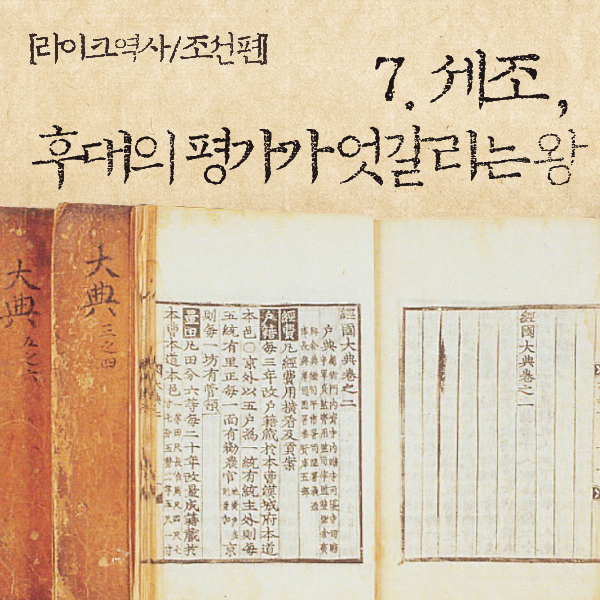 [라이크역사/조선편]
7. 세조,
후대의 평가가 엇갈리는 왕
大典
五之六
大典
三之四
經國大典卷之二
戶典
經費 凡經費用橫看及貢案
戶籍 每三年改戶籍藏於本曹漢城府本道
本邑 ○京外以五戶爲一統有統主外則每
五統有里正每一面有勸農官
則每一坊有管領
量田 凡田分六等每二十年改量成籍藏於
本曹本道本邑
經國大典卷之一